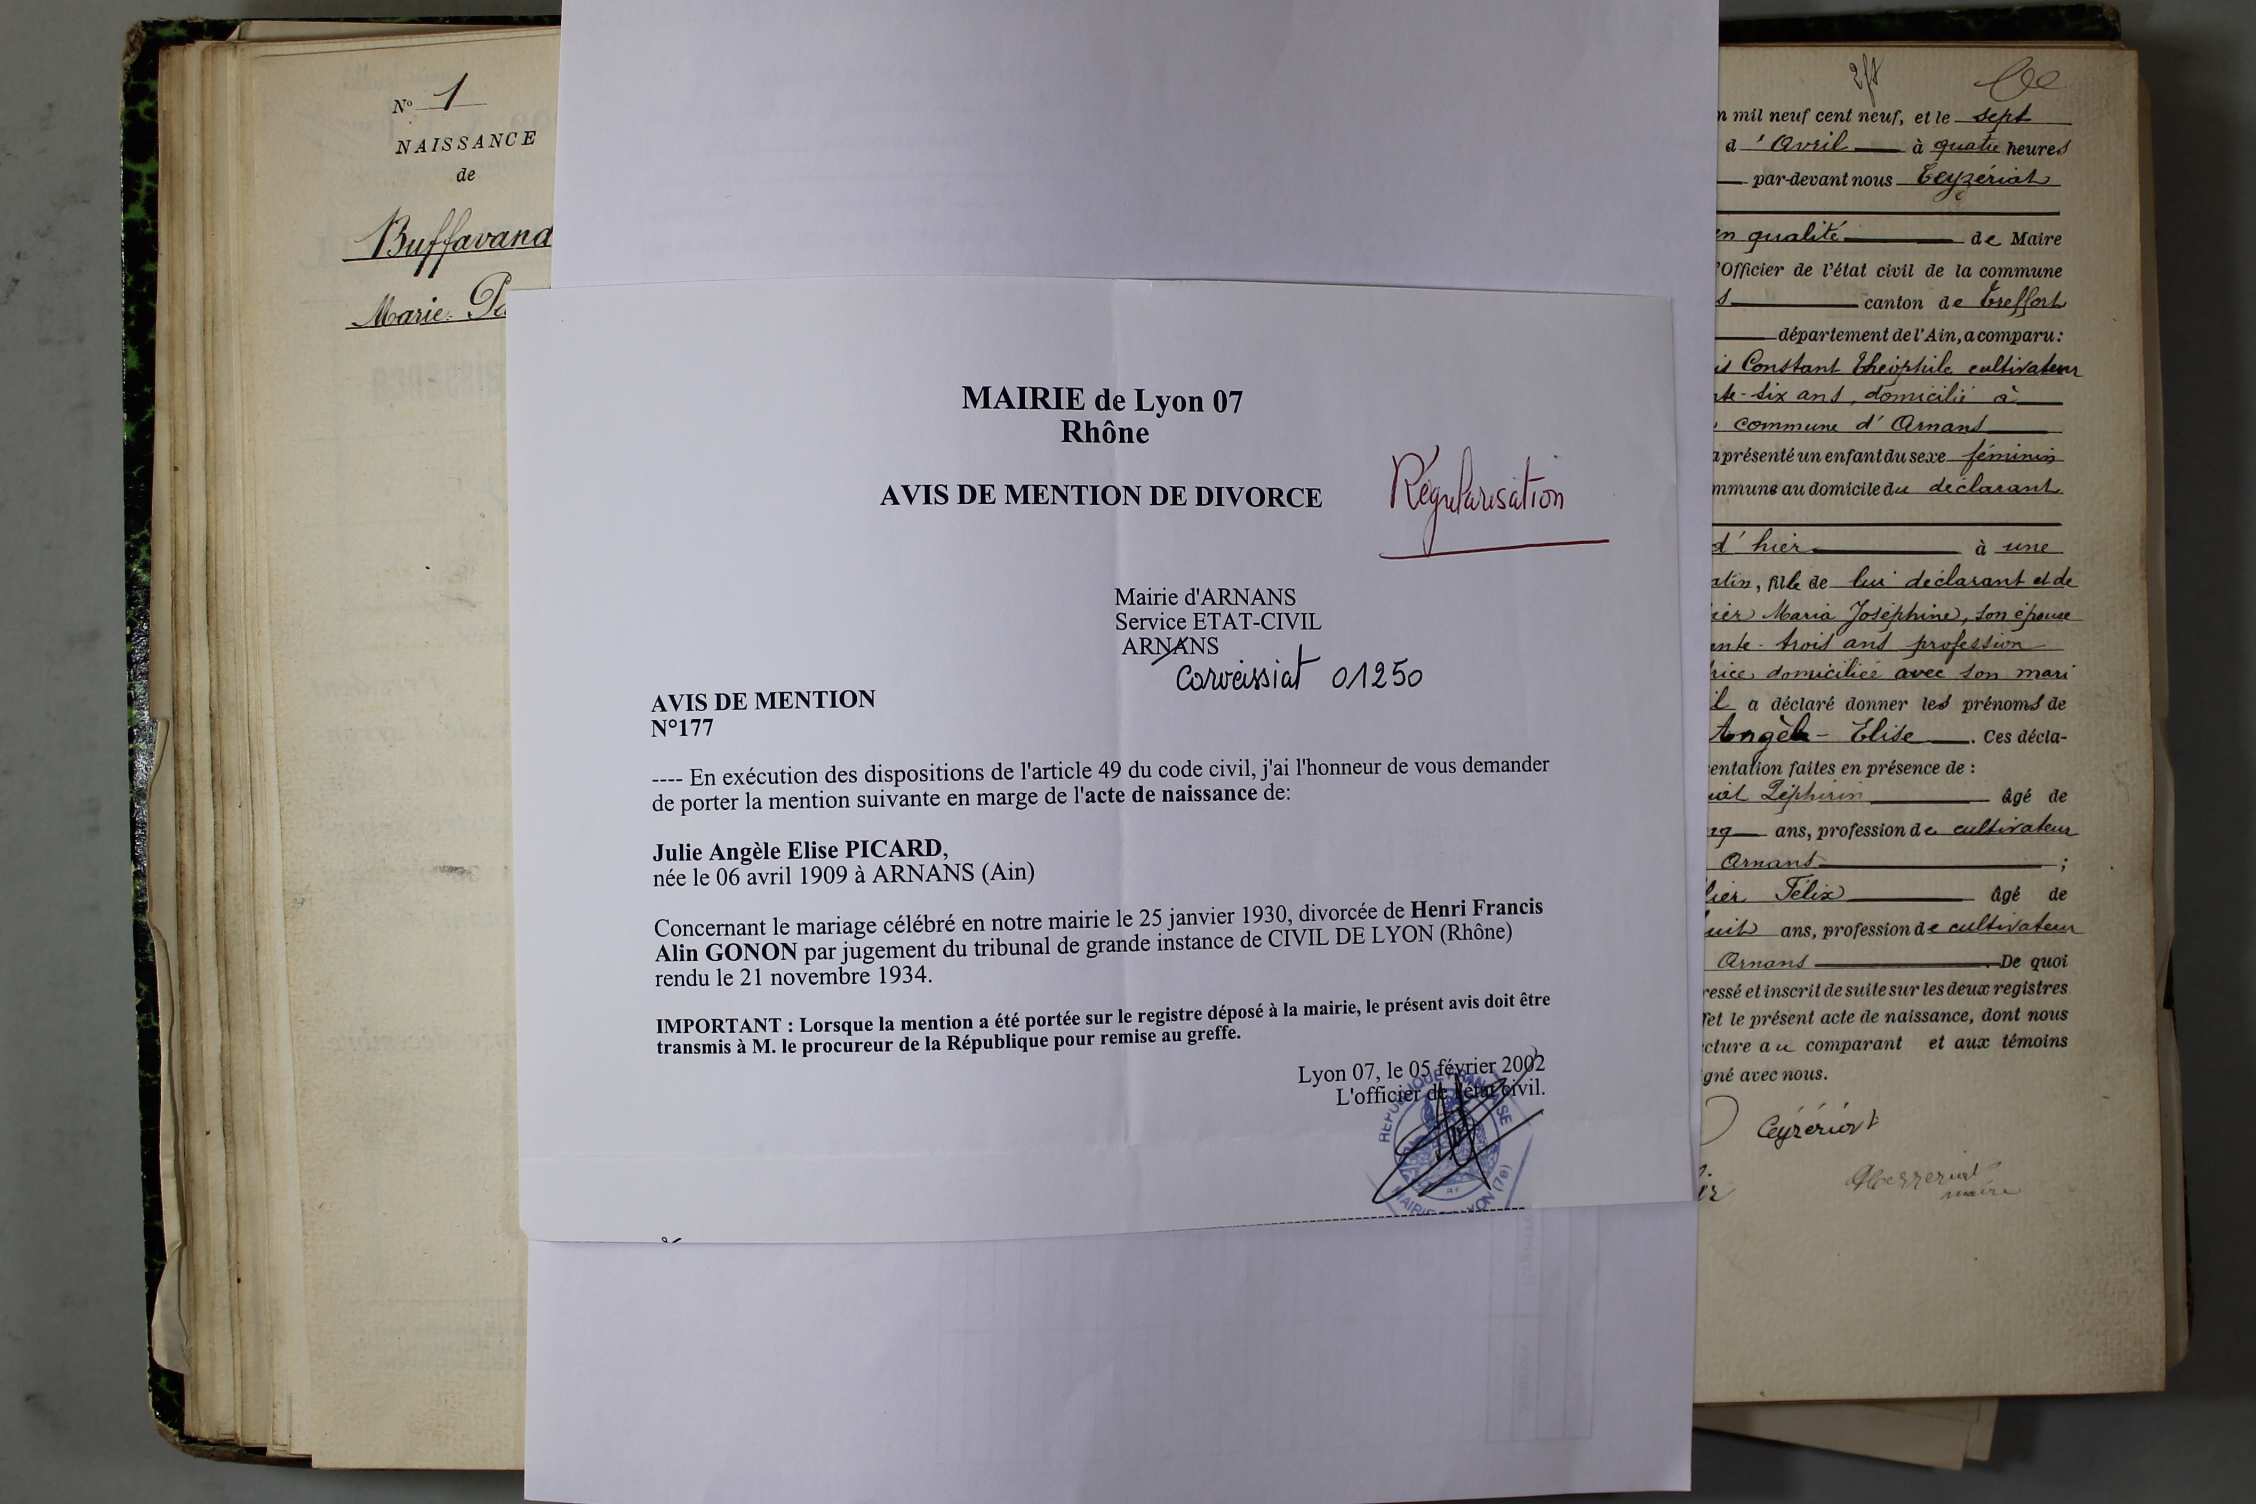 N° 1
NAISSANCE
de
Buffavand
Marie
MAIRIE de Lyon 07
Rhône
AVIS DE MENTION DE DIVORCE
Régularisation
Mairie d'ARNANS
Service ETAT-CIVIL
ARNANS
Corveissiat 01250
AVIS DE MENTION
N°177
---- En exécution des dispositions de l'article 49 du code civil, j'ai l'honneur de vous demander
de porter la mention suivante en marge de l'acte de naissance de:
Julie Angèle Elise PICARD,
née le 06 avril 1909 à ARNANS (Ain)
Concernant le mariage célébré en notre mairie le 25 janvier 1930, divorcée de Henri Francis
Alin GONON par jugement du tribunal de grande instance de CIVIL DE LYON (Rhône)
rendu le 21 novembre 1934.
IMPORTANT : Lorsque la mention a été portée sur le registre déposé à la mairie, le présent avis doit être
transmis à M. le procureur de la République pour remise au greffe.
Lyon 07, le 05 février 2002
L'officier de l'état civil.
n mil neuf cent neuf, et le sept
d'Avril à quatre heures
par-devant nous Ceyzériat
en qualité de Maire
'Officier de l'état civil de la commune
s canton de Treffort
département de l'Ain, a comparu:
is Constant Théophile cultivateur
te-six ans, domicilié à
commune d'Arnans
a présenté un enfant du sexe féminin
mmune au domicile du déclarant
d'hier à une
atin, fille de lui déclarant et de
ier Maria Joséphine, son épouse
ente-trois ans profession
rice domiciliée avec son mari
il a déclaré donner les prénoms de
Angèle-Elise. Ces décla-
entation faites en présence de :
iat Zéphirin âgé de
nq ans, profession de cultivateur
Arnans ;
lier Félix âgé de
uit ans, profession de cultivateur
Arnans. De quoi
ressé et inscrit de suite sur les deux registres
fet le présent acte de naissance, dont nous
cture au comparant et aux témoins
gné avec nous.
Ceyzériat
maire